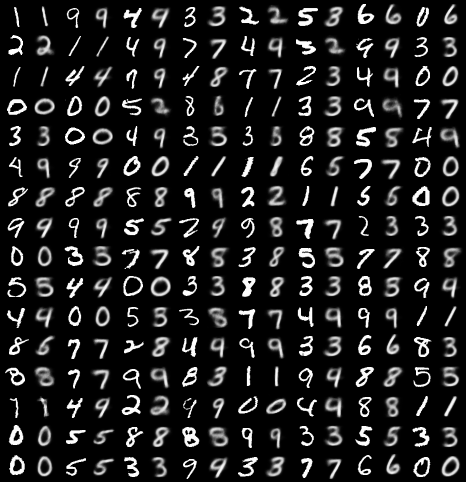 1 1 9 9 4 9 3 3 2 2 5 8 6 6 0 6
2 2 1 1 4 9 7 7 4 9 3 2 9 9 3 3
1 1 4 4 7 9 4 8 7 7 2 3 4 9 0 0
0 0 0 0 5 2 8 6 1 1 3 3 9 9 7 7
3 3 0 0 4 9 3 5 3 5 8 8 5 8 4 9
4 9 9 9 0 0 1 1 1 1 6 5 7 7 0 0
8 8 8 8 8 8 9 9 2 2 1 1 5 6 0 0
9 9 9 9 5 5 7 9 9 8 7 7 2 3 3 3
0 0 3 5 7 7 8 8 3 8 5 5 7 7 8 8
5 5 4 4 0 0 3 3 8 8 3 3 8 5 9 9
4 9 0 0 5 3 3 8 7 7 4 9 9 9 1 1
8 6 7 7 2 8 4 9 9 9 3 3 6 6 8 3
8 8 7 7 9 9 8 3 1 1 9 4 8 8 5 5
7 1 4 9 2 2 9 9 0 0 4 9 8 8 1 1
0 0 5 5 8 8 8 8 9 9 3 3 5 5 3 3
0 0 5 5 3 3 9 9 3 3 7 7 6 6 0 0